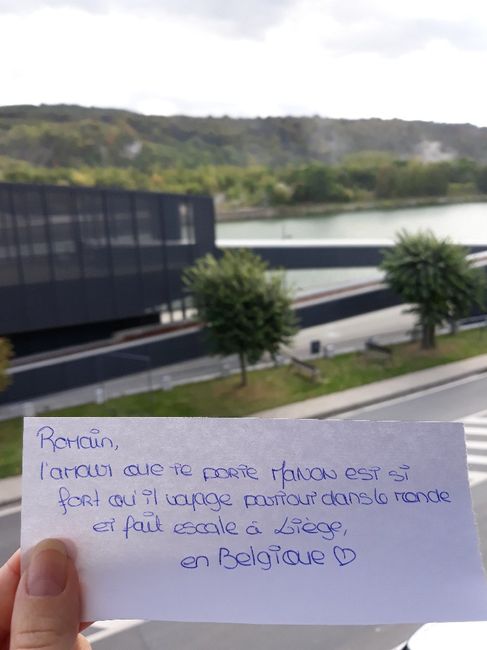 Romain,
l'amour que te porte Manon est si
fort qu'il voyage partout dans le monde
et fait escale à Liège,
en Belgique ♡